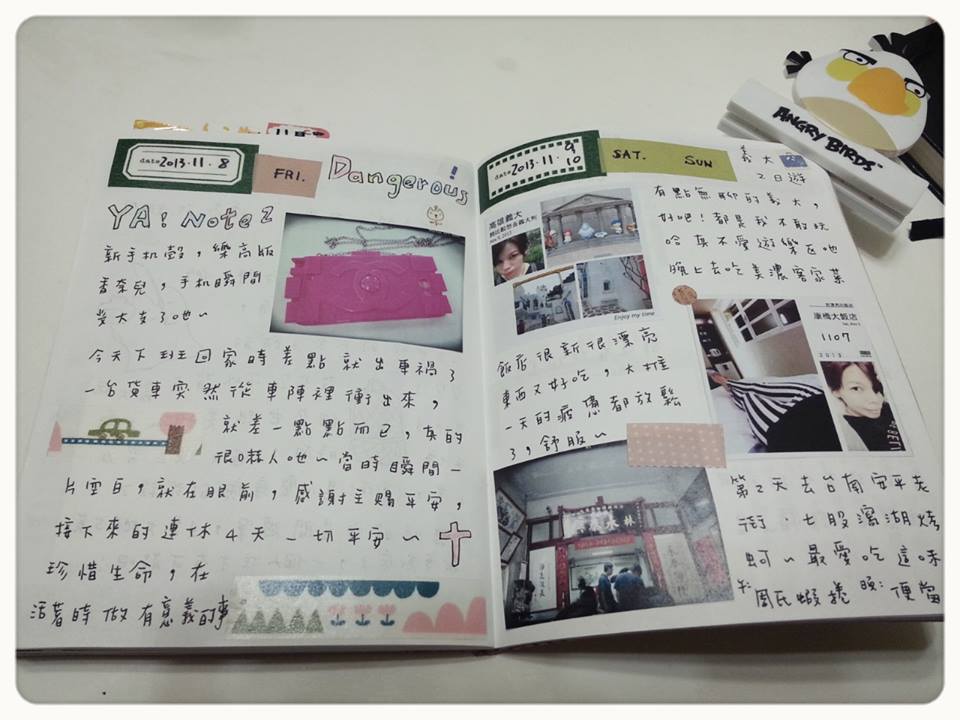 date 2013.11.8
FRI.
Dangerous!
YA! Note 2
新手机殼,樂高版
香奈兒,手机瞬間
變大支了吔~
今天下班回家時差點就出車禍了
一台貨車突然從車陣裡衝出來,
就差一點點而已,真的
很嚇人吔~當時瞬間一
片空白,就在眼前,感謝主賜平安,
接下來的連休4天一切平安~
珍惜生命,在
活著時做有意義的事
date 2013.11.9
10
SAT. SUN
義大
2日遊
有點無聊的義大,
好吧!都是我不敢玩
哈 真不愛遊樂區吔
晚上去吃美濃客家菜
高雄義大
Enjoy my time
康橋大飯店
1107
2013
飯店很新很漂亮
東西又好吃,大推
一天的疲憊都放鬆
了,舒服~
第2天去台南安平老
街,七股潟湖烤
蚵~最愛吃這味
午:周氏蝦捲 晚:便當
ANGRY BIRDS